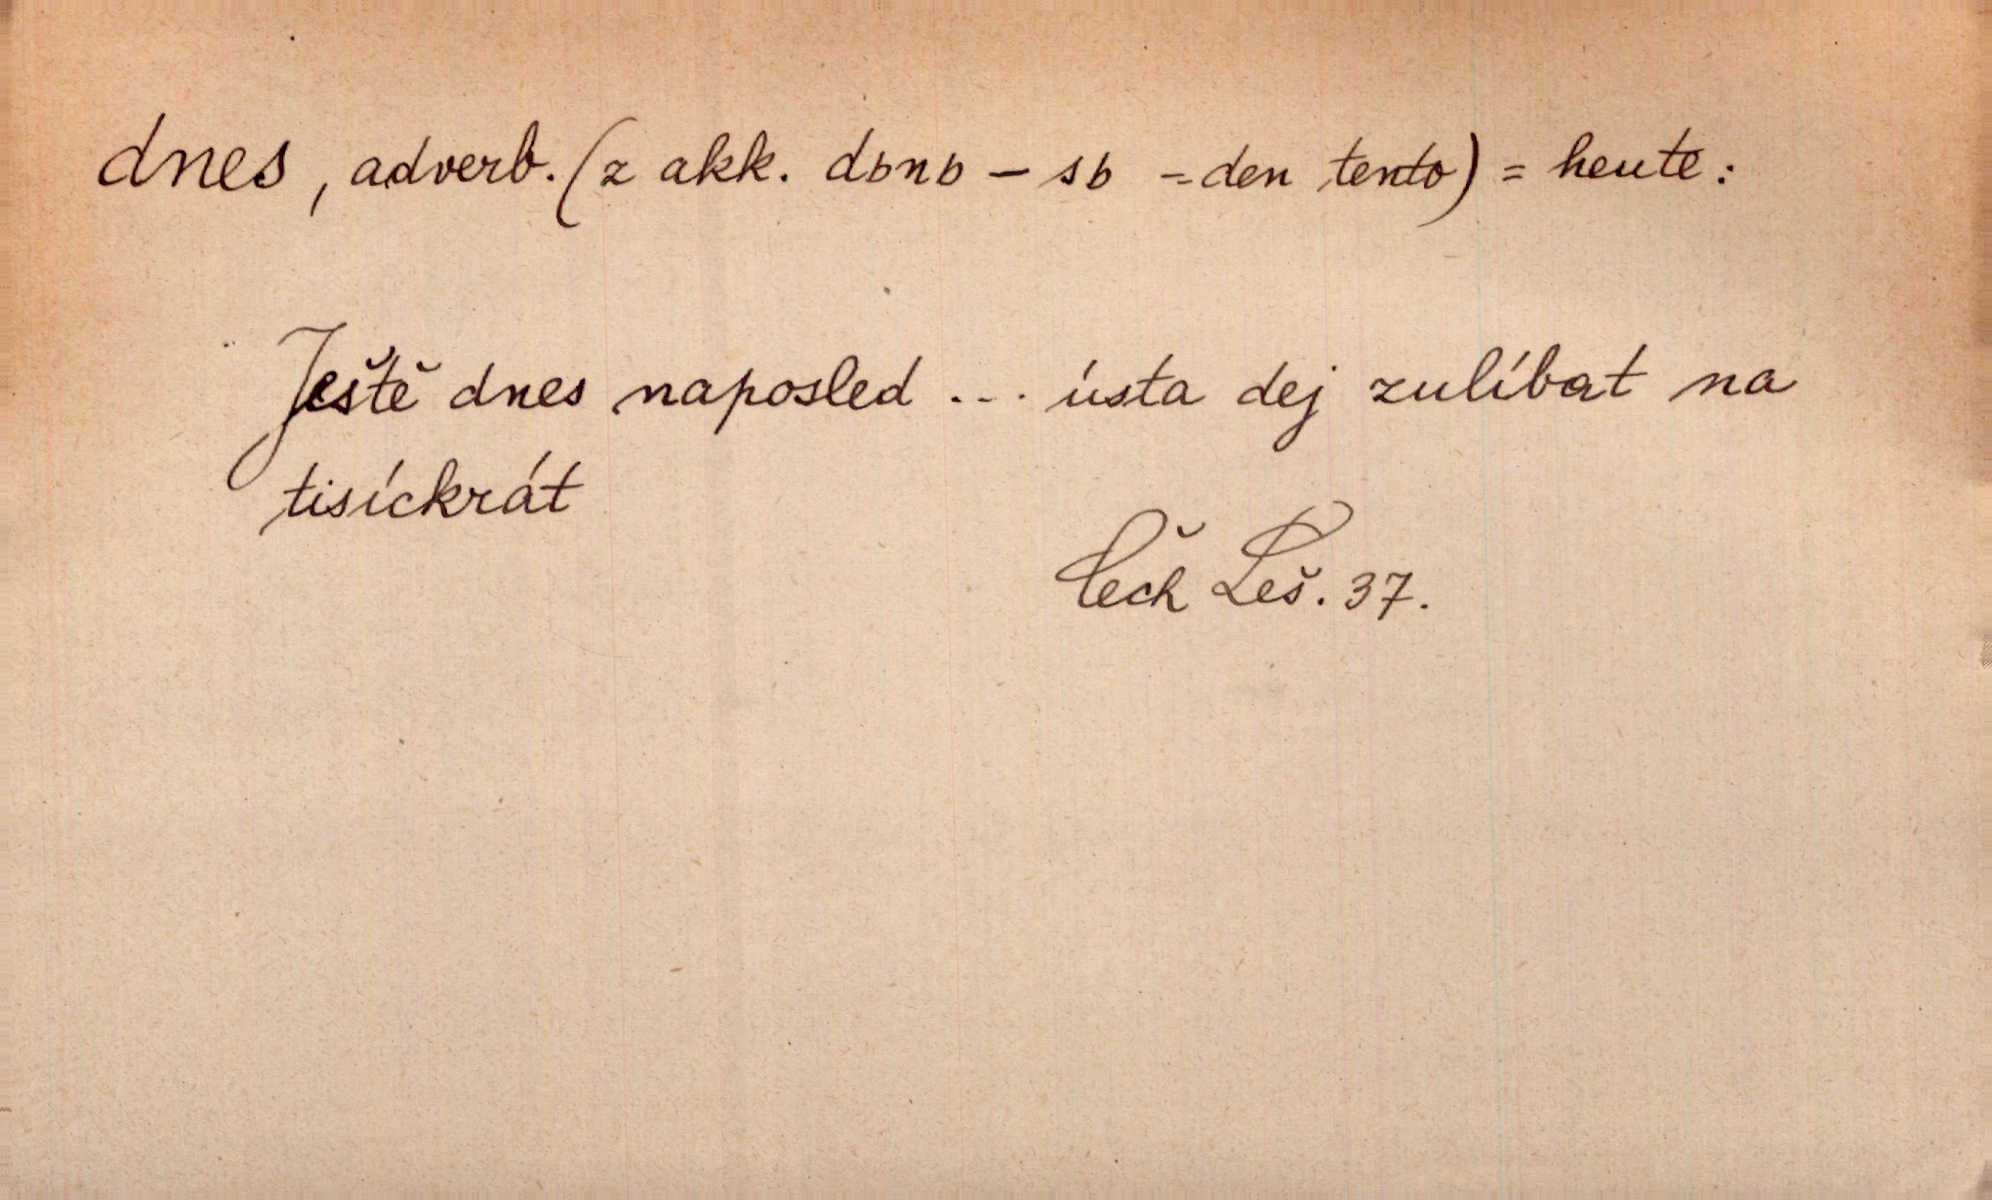 dnes, adverb. (z akk. dьnь – sь = den tento) = heute:
Ještě dnes naposled ... ústa dej zulíbat na
tisíckrát
Čech Leš. 37.